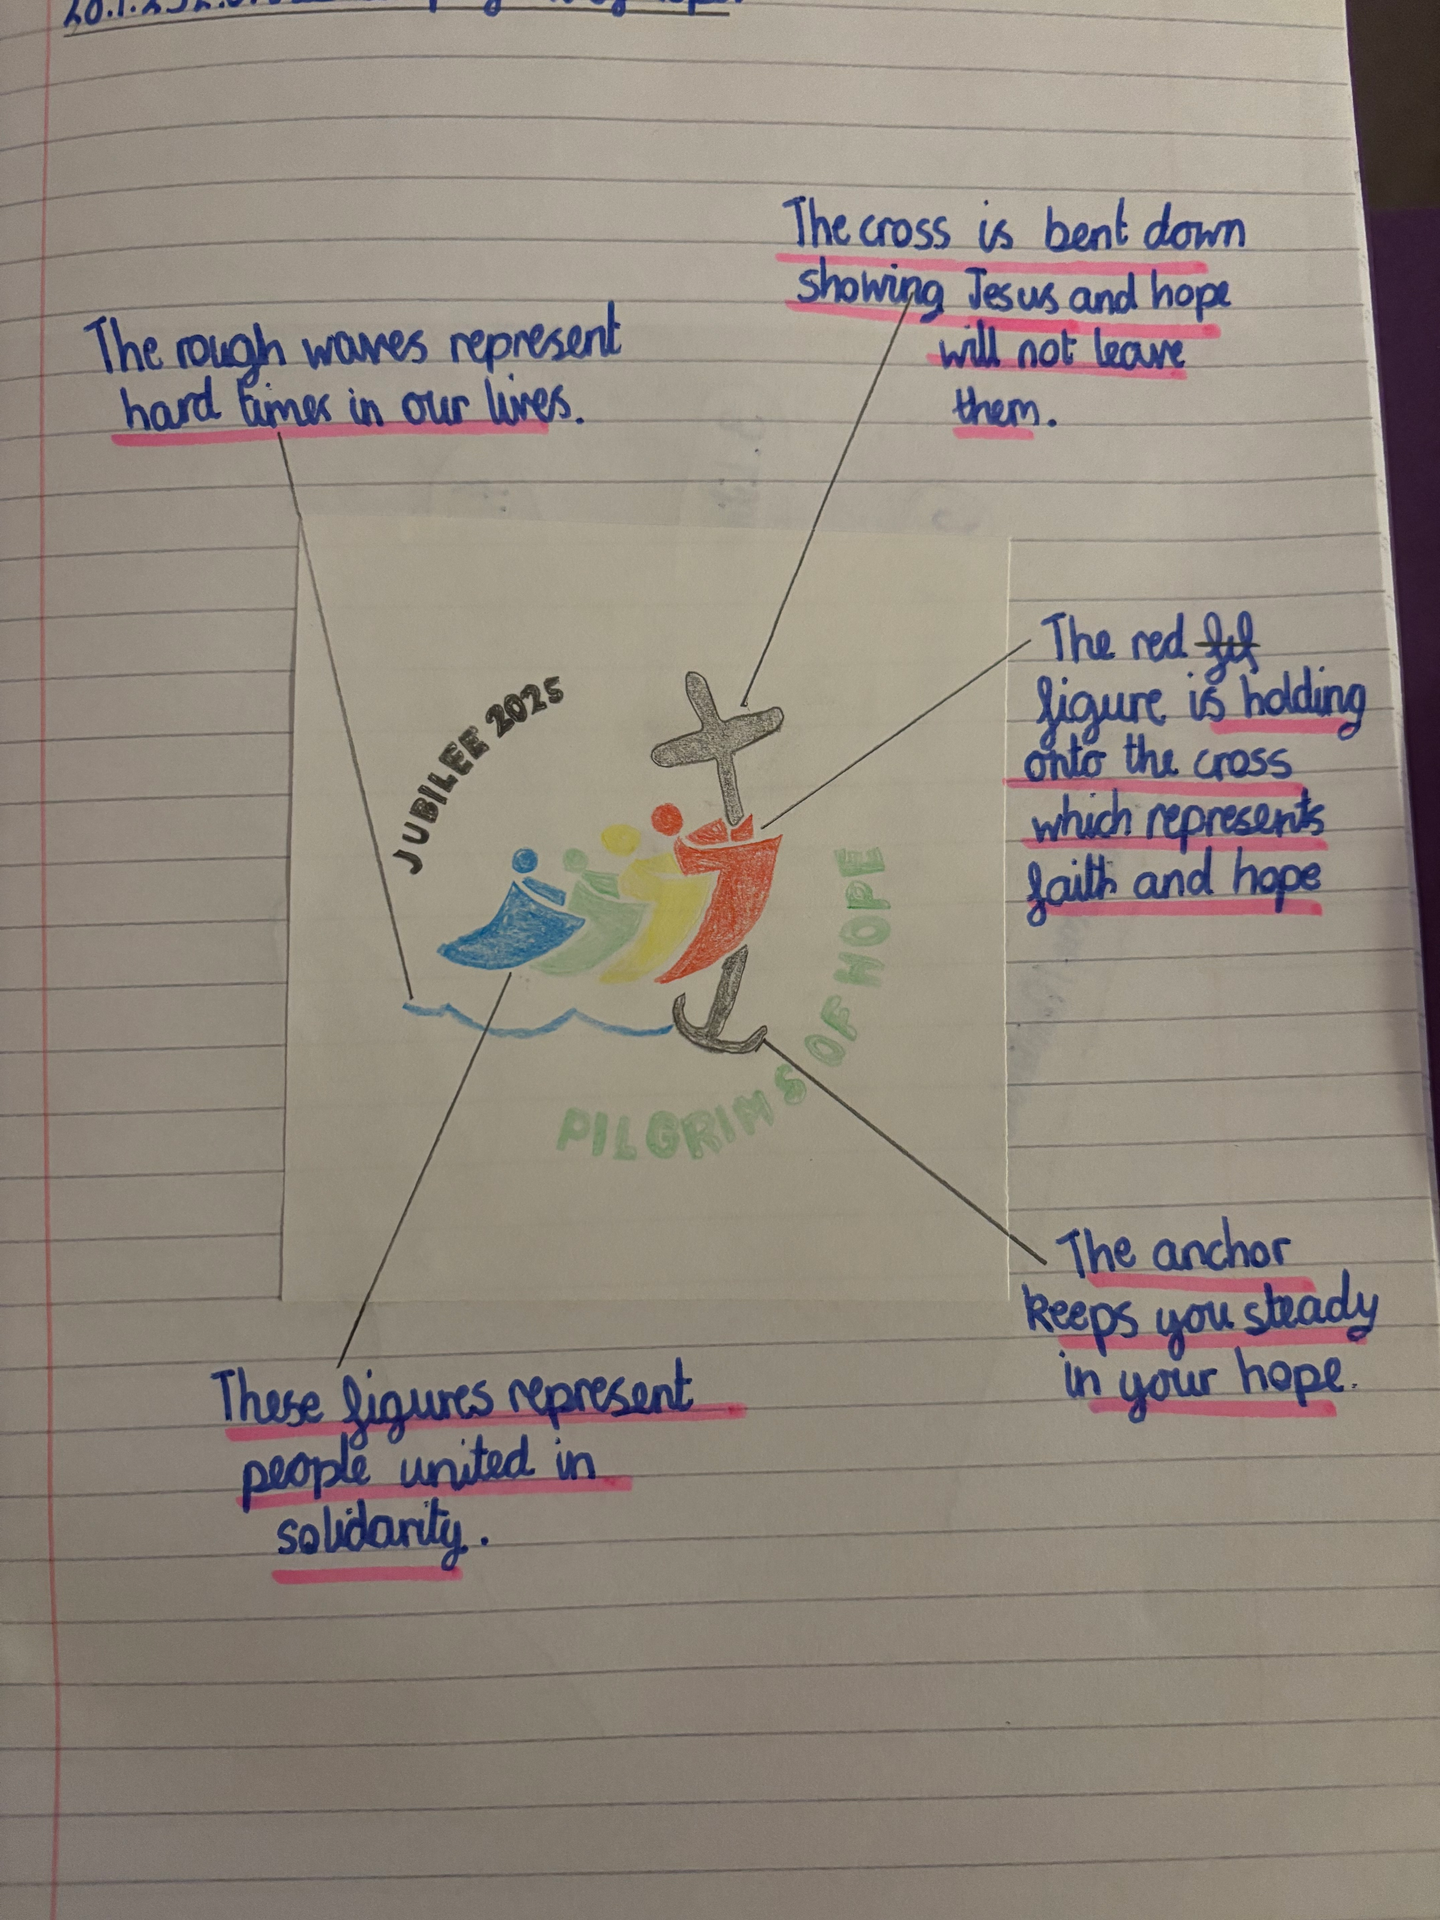 The cross is bent down
showing Jesus and hope
will not leave
them.
The rough waves represent
hard times in our lives.
JUBILEE 2025
The red
figure is holding
onto the cross
which represents
faith and hope
PILGRIMS OF HOPE
The anchor
keeps you steady
in your hope.
These figures represent
people united in
solidarity.